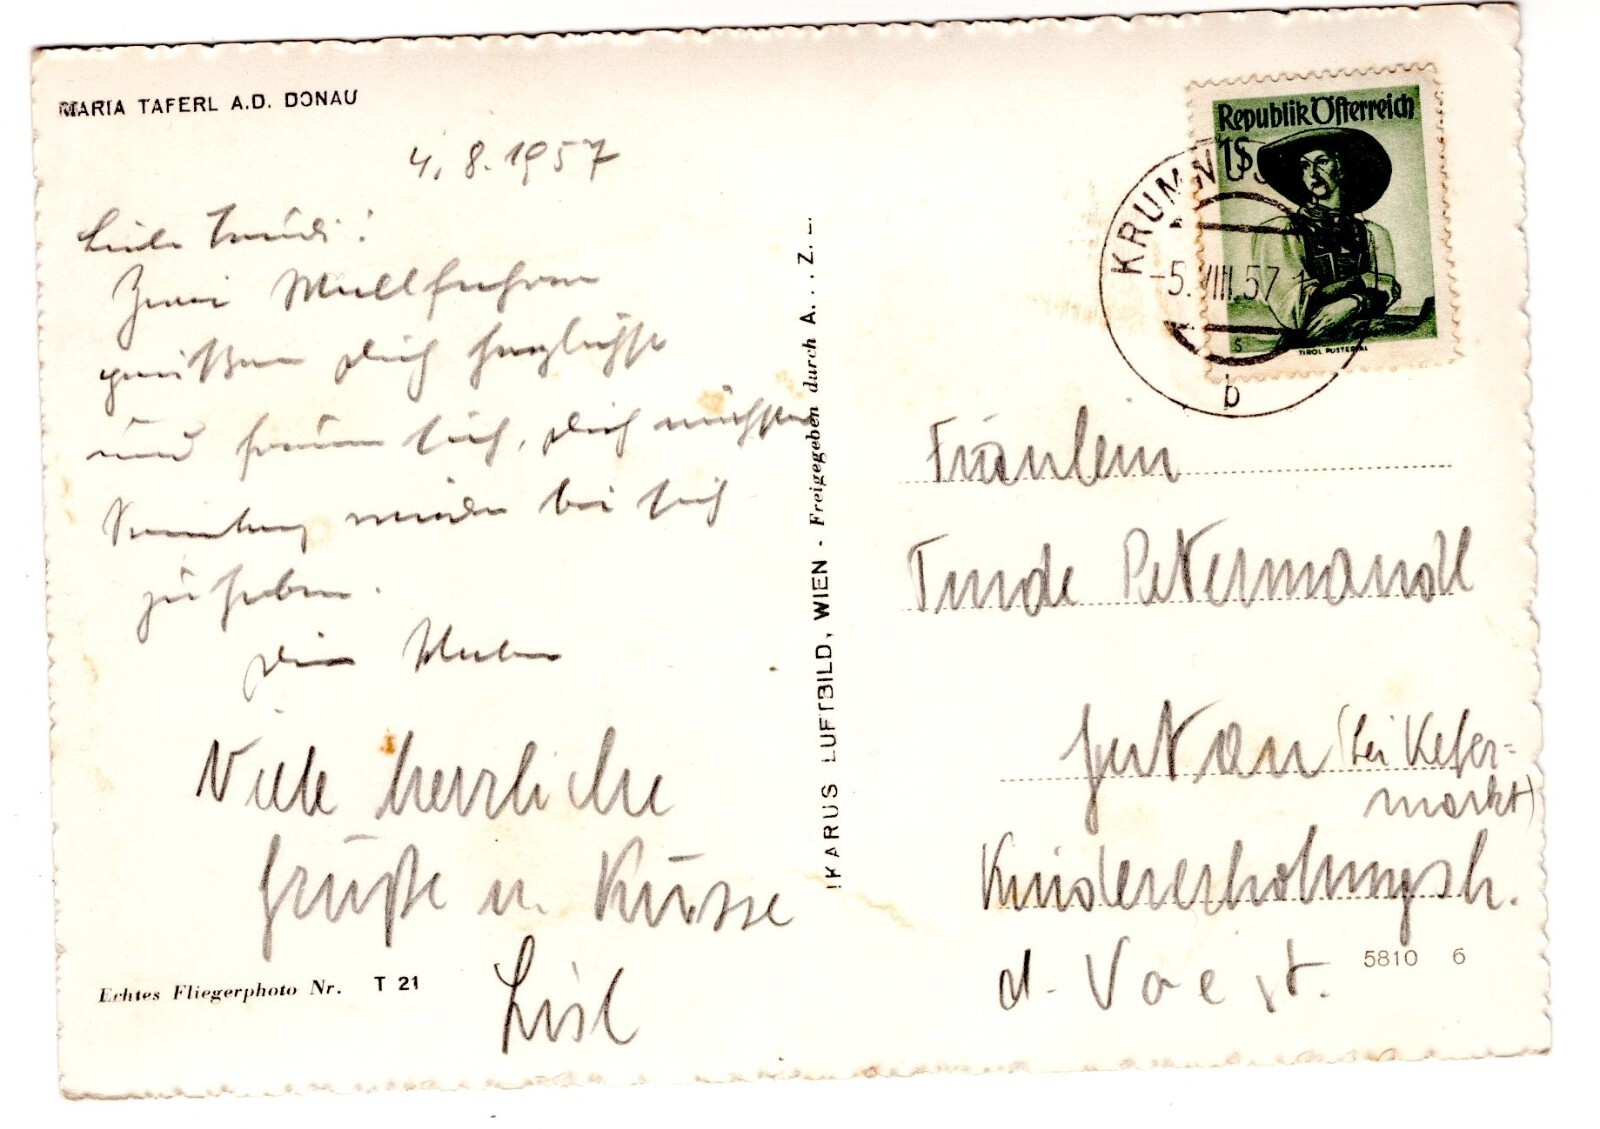 MARIA TAFERL A.D. DONAU
4.8.1957
Liebe Trudi!
Zwei Wallfahrer
grüßen Dich herzlichst
und freuen sich, Dich nächsten
Sonntag wieder bei sich
zu haben.
Dein
Viele herzliche
Grüße u. Küsse
Lisl
Echtes Fliegerphoto Nr. T 21
IKARUS LUFTBILD, WIEN - Freigegeben durch A... Z. –
Republik Österreich
1S
TIROL PUSTERTAL
KRUMN
-5.VIII.57
b
Fräulein
Trude Petermandl
Gutau (bei Kefer=
markt)
Kindererholungsh.
d. Voest.
5810 6